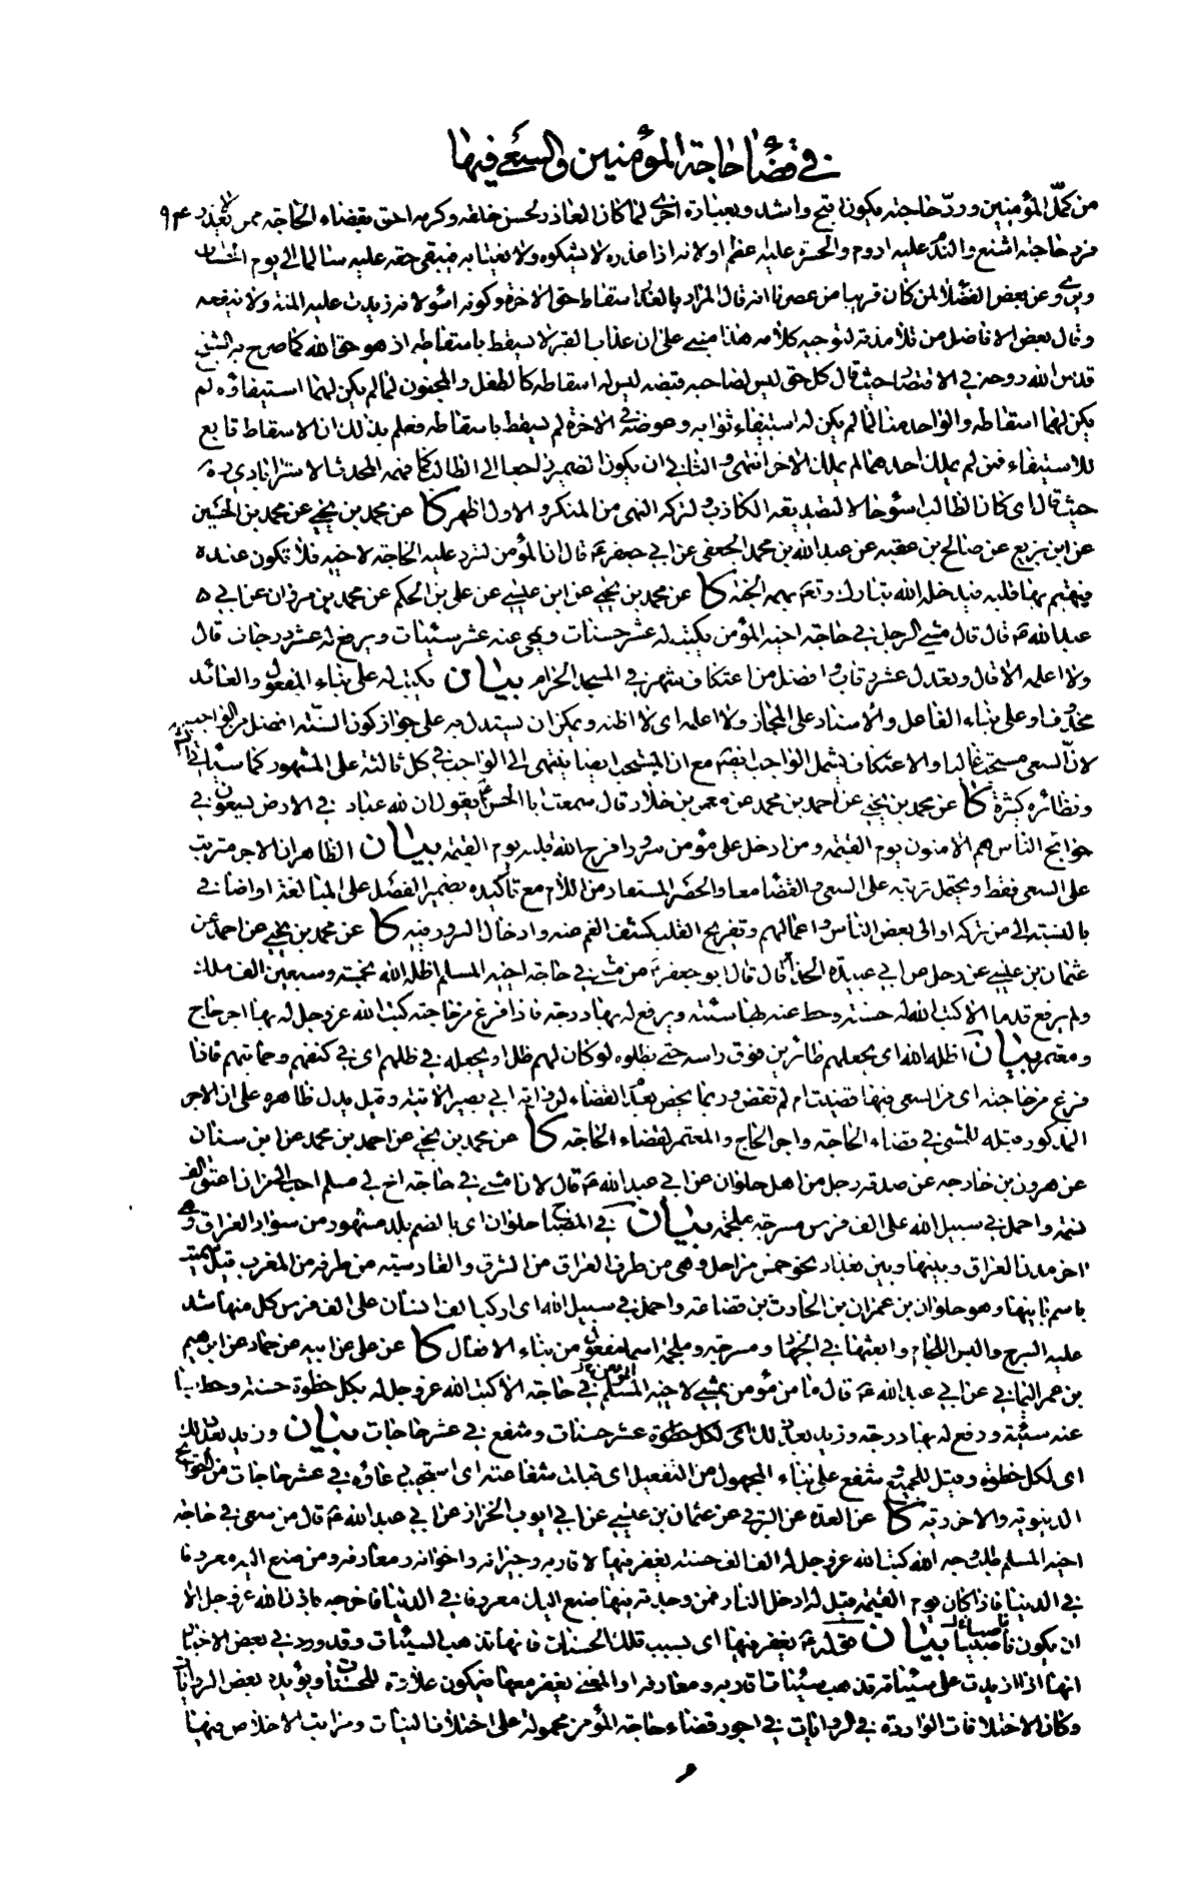 في قضاء حاجة المؤمنين والسعي فيها
من كمّل المؤمنين وردّ حاجته يكون اقبح واشد وبعبارة اخرى لما كان العاذر لحسن خلقه وكرمه احق بقضاء الحاجة ممن لا يعذر ٩٤
فرد حاجته اشنع والندم عليه ادوم والحسرة عليه عظم اولانه اذا عذره لا يشكوه ولا يغتابه فيبقى حقه عليه سالما الى يوم الحساب
ويروى عن بعض الفضلاء ممن كان قريبا من عصرنا انه قال المراد بالعذر اسقاط حق الاخرة وكونه اسوء لانه زيدت عليه المنة ولا ينفعه
وقال بعض الافاضل من تلامذته لتوجيه كلامه هذا مبني على ان عذاب القبر لا يسقط باسقاطه اذ هو حق الله كما صرح به الشيخ
قدس الله روحه في الاقتصاد حيث قال كل حق ليس لصاحبه قبضه ليس له اسقاطه كالطفل والمجنون لما لم يكن لهما استيفاؤه لم
يكن لهما اسقاطه والواحد منا لما لم يكن له استيفاء ثوابه وعوضه في الاخرة لم يسقط باسقاطه فعلم بذلك ان الاسقاط تابع
للاستيفاء فمن لم يملك احدهما لم يملك الاخر انتهى والثاني ان يكون الضمير راجعا الى الطالب كما فهمه المحدث الاسترابادي ره
حيث قال اى كان الطالب اسوء حالا لتصديقه الكاذب ولتركه النهى عن المنكر والاول اظهر كا عن محمد بن يحيى عن محمد بن الحسين
عن ابن بزيع عن صالح بن عقبه عن عبد الله بن محمد الجعفى عن ابي جعفر ع قال ان المؤمن لترد عليه الحاجة لاخيه فلا تكون عنده
فيهتم بها قلبه فيدخله الله تبارك وتعالى بهمه الجنة كا عن محمد بن يحيى عن ابن عيسى عن على بن الحكم عن محمد بن مروان عن ابي
عبد الله ع قال قال مشى الرجل في حاجة اخيه المؤمن يكتب له عشر حسنات ويمحى عنه عشر سيئات ويرفع له عشر درجات قال
ولا اعلمه الا قال ويعدل عشر رقاب وافضل من اعتكاف شهر في المسجد الحرام بيان يكتب له على بناء المفعول والعائد
محذوف او على بناء الفاعل والاسناد على المجاز ولا اعلمه اى لا اظنه ويمكن ان يستدل به على جواز كون السنّة افضل من الواجب
لانّ السعى مستحب غالبا والاعتكاف يشمل الواجب ايضا مع ان المستحب ايضا ينتهى الى الواجب في كل ثالثة على المشهور كما سيأتي
ونظائره كثيرة كا عن محمد بن يحيى عن احمد بن محمد عن معمر بن خلاد قال سمعت ابا الحسن ع يقول ان لله عبادا في الارض يسعون في
حوائج الناس هم الامنون يوم القيمة ومن ادخل على مؤمن سرورا فرح الله قلبه يوم القيمة بيان الظاهر ان الاجر مترتب
على السعى فقط ويحتمل ترتبه على السعى والقضاء معا والحصر المستفاد من اللام مع تأكيده بضمير الفصل على المبالغة او اضافي
بالنسبة الى من تركه او الى بعض الناس واعمالهم وتفريح القلب كشف الغم عنه وادخال السرور فيه كا عن محمد بن يحيى عن احمد عن
عثمان بن عيسى عن رجل عن ابي عبيدة الحذاء قال قال ابو جعفر ع من مشى في حاجة اخيه المسلم اظله الله بخمسة وسبعين الف ملك
ولم يرفع قدما الا كتب الله له حسنة وحط عنه بها سيئة ويرفع له بها درجة فاذا فرغ من حاجته كتب الله عز وجل له بها اجر حاج
ومعتمر بيان اظله الله اى يجعلهم طائرين فوق راسه حتى يظلوه لو كان لهم ظل او يجعله في ظلهم اى في كنفهم وحمايتهم فاذا
فرغ من حاجته اى من السعى فيها قضيت ام لم تقض وربما يخص بعدم القضاء لرواية ابي بصير الاتية وقيل يدل ظاهره على ان الاجر
المذكور قبله للمشى في قضاء الحاجة واجر الحاج والمعتمر لقضاء الحاجة كا عن محمد بن يحيى عن احمد بن محمد عن ابن سنان
عن هرون بن خارجه عن صدقه رجل من اهل حلوان عن ابي عبد الله ع قال لان امشى في حاجة اخ لي مسلم احب الى من ان اعتق الف
نسمة واحمل في سبيل الله على الف فرس مسرجة ملجمة بيان في المصباح حلوان اى بالضم بلد مشهور من سواد العراق وهى
اخر مدن العراق وبينها وبين بغداد نحو خمس مراحل وهى من طرف العراق من الشرق والقادسية من طرفه من المغرب قيل سميت
باسم بانيها وهو حلوان بن عمران بن الحارث بن قضاعة واحمل في سبيل الله اى اركب الف انسان على الف فرس كل منها شد
عليه السرج والبس اللجام وابعثها في الجهاد ومسرجة وملجمة اسما مفعول من بناء الافعال كا عن على عن ابيه عن حماد عن ابرهيم
بن عمر اليماني عن ابي عبد الله ع قال ما من مؤمن يمشى لاخيه المسلم في حاجة الا كتب الله عز وجل له بكل خطوة حسنة وحط بها
عنه سيئة ورفع له بها درجة وزيد بعد ذلك عشر حسنات وشفع في عشر حاجات بيان وزيد بعد ذلك
اى لكل خطوة وقيل للجميع وشفع على بناء المجهول من التفعيل اى قبلت شفاعته اى استجيب دعاؤه في عشر حاجات من الحوائج
الدنيوية والاخروية كا عن العدة عن البرقى عن عثمان بن عيسى عن ابي ايوب الخزاز عن ابي عبد الله ع قال من سعى في حاجة
اخيه المسلم طلب وجه الله كتب الله عز وجل له الف الف حسنة يغفر فيها لاقاربه وجيرانه واخوانه ومعارفه ومن صنع اليه معروفا
في الدنيا فاذا كان يوم القيمة قيل له ادخل النار فمن وجدته فيها صنع اليك معروفا في الدنيا فاخرجه باذن الله عز وجل الا
ان يكون ناصبيا بيان قوله ع يغفر فيها اى بسبب تلك الحسنات فانها تذهب السيئات وقد ورد في بعض الاخبار
انها اذا زيدت على سيئاته تذهب سيئات اقاربه ومعارفه او المعنى يغفر معها فيكون علاوة للحسنات ويؤيده بعض الروايات
وكان الاختلافات الواردة في الروايات في اجور قضاء حاجة المؤمن محمولة على اختلاف النيات ومراتب الاخلاص فيها